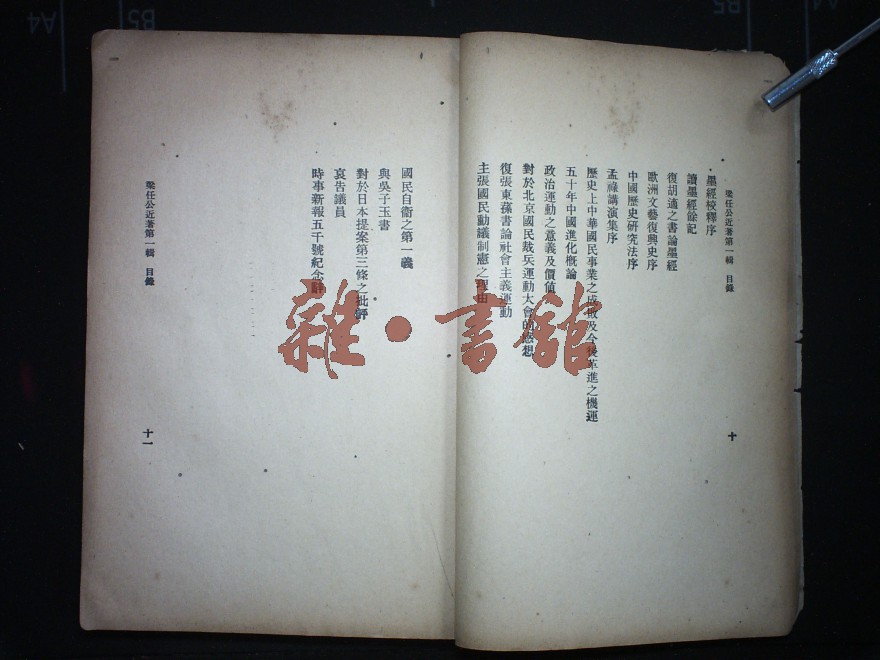 梁任公近著第一輯 目錄
十
墨經校釋序
讀墨經餘記
復胡適之書論墨經
歐洲文藝復興史序
中國歷史研究法序
孟祿講演集序
歷史上中華國民事業之成敗及今後革進之機運
五十年中國進化概論
政治運動之意義及價值
對於北京國民裁兵運動大會的感想
復張東蓀書論社會主義運動
主張國民動議制憲之理由
國民自衞之第一義
與吳子玉書
對於日本提案第三條之批評
哀告議員
時事新報五千號紀念辭
梁任公近著第一輯 目錄
十一
雜·書館
A4
B5
B5
A4